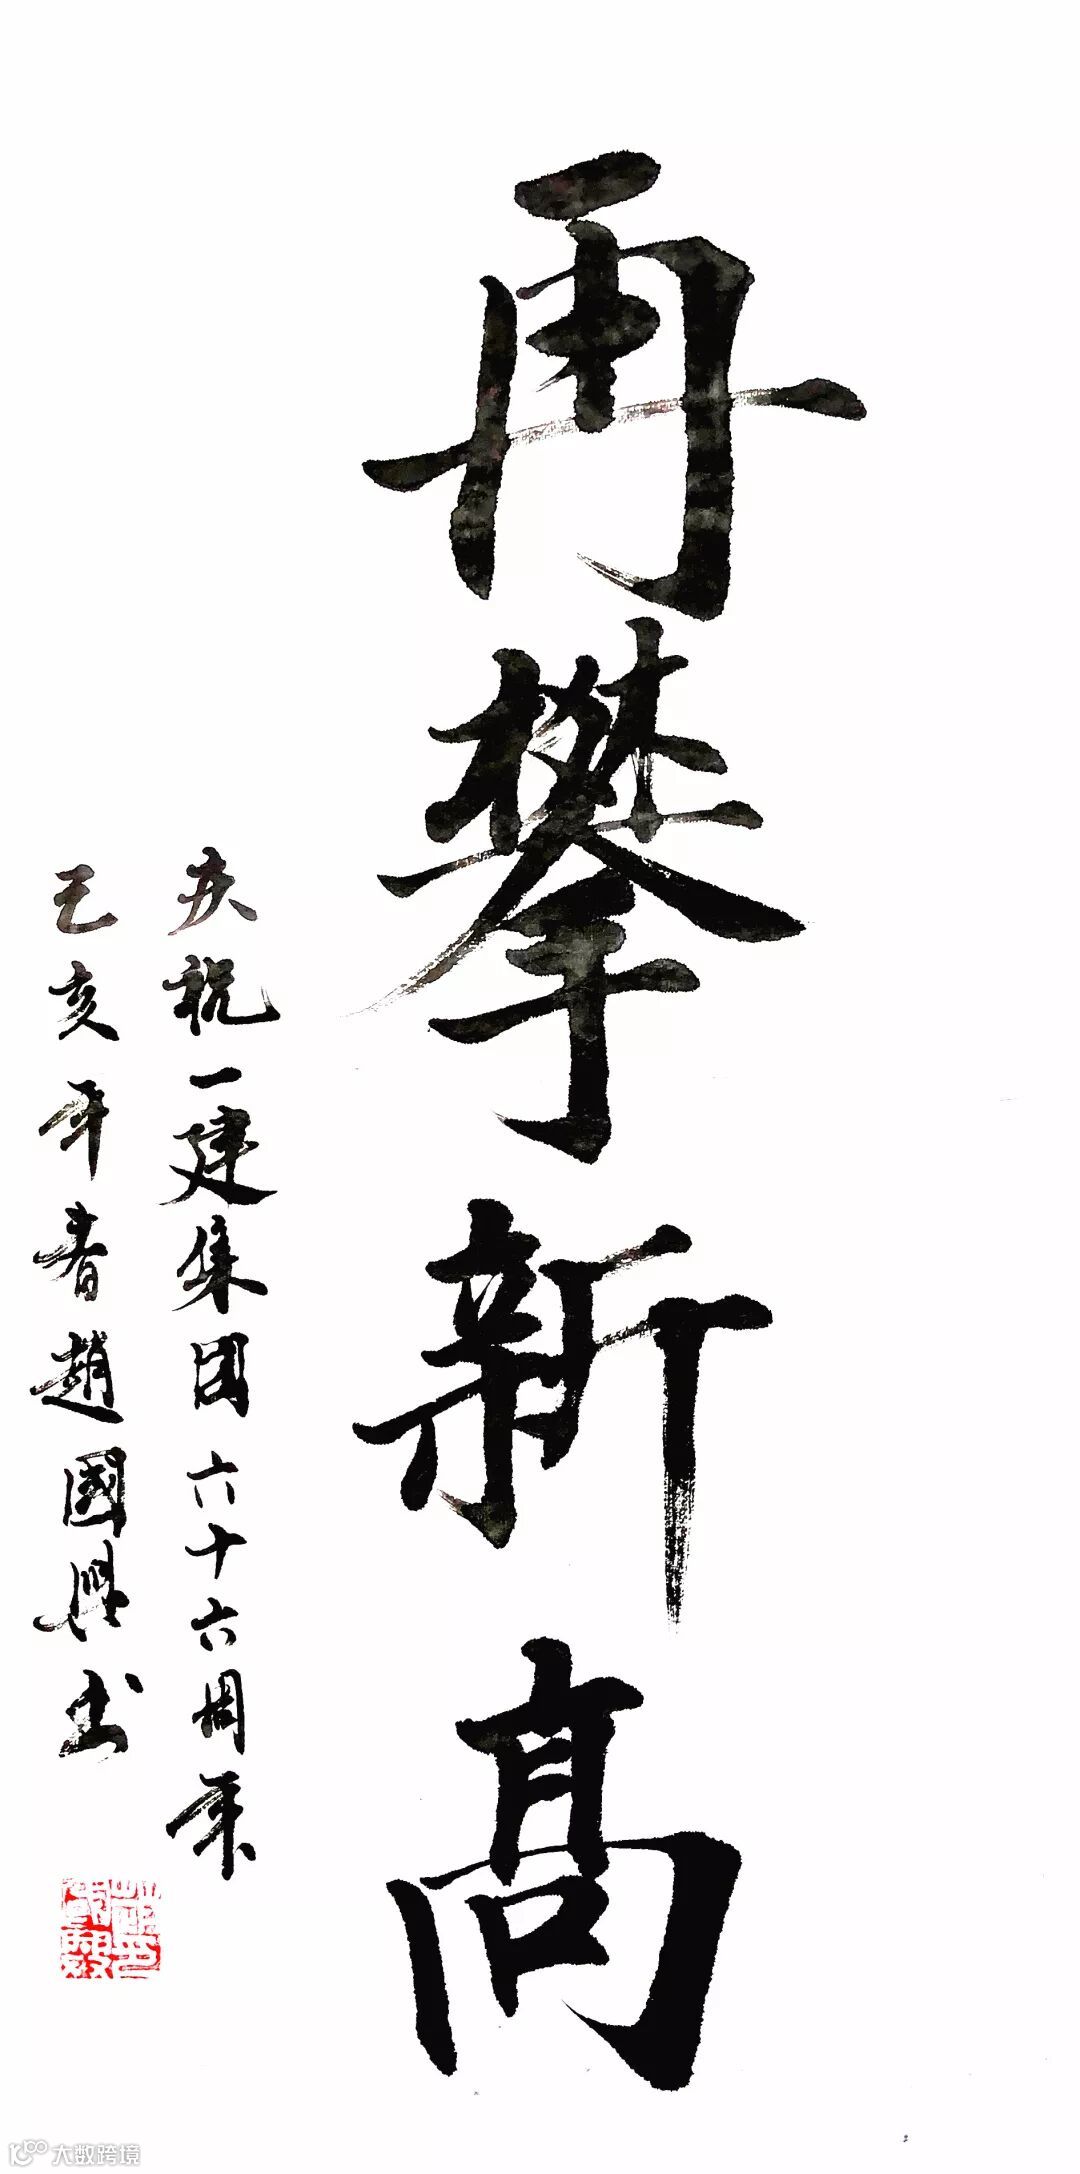 再攀新高
庆祝一建集团六十六周年
己亥年春趙國興书
大数跨境